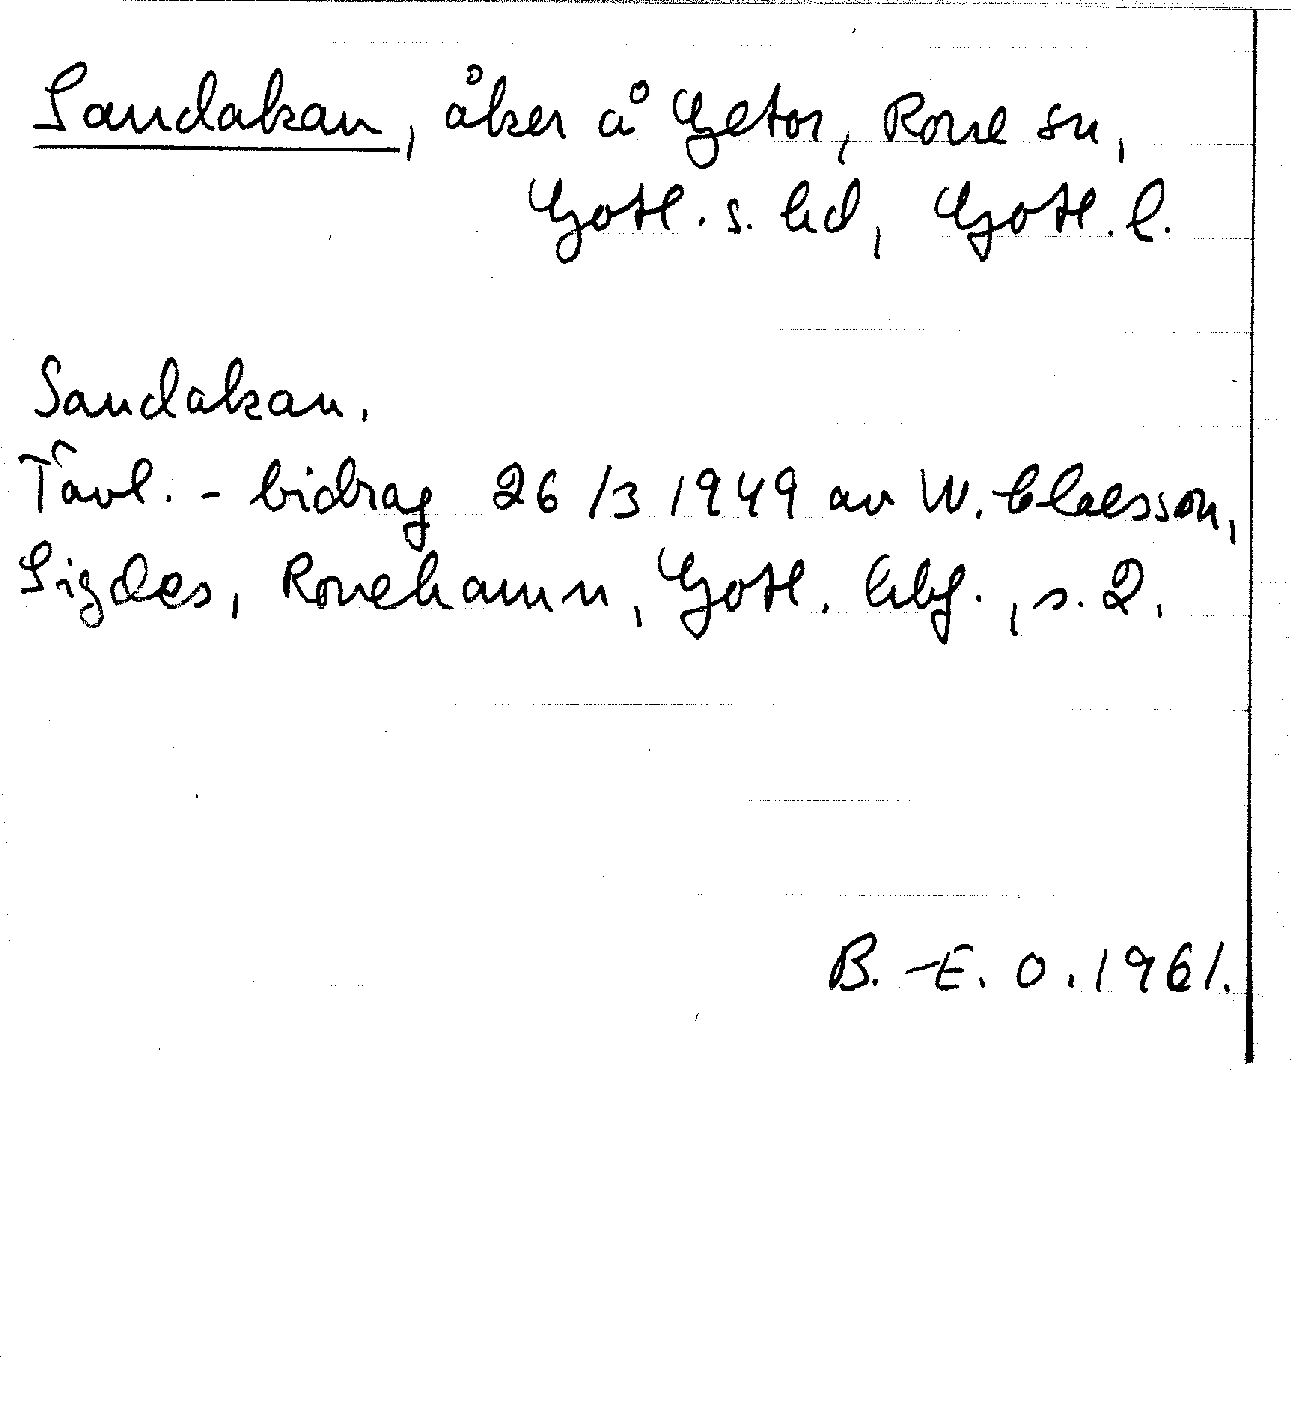 Sandakan, åker å Getor, Rone sn,
Gotl. s. hd, Gotl. l.
Sandakan.
Tävl. - bidrag 26/3 1949 av W. Claesson,
Sigdes, Ronehamn, Gotl. hbf., s. 2.
B. -E. O. 1961.